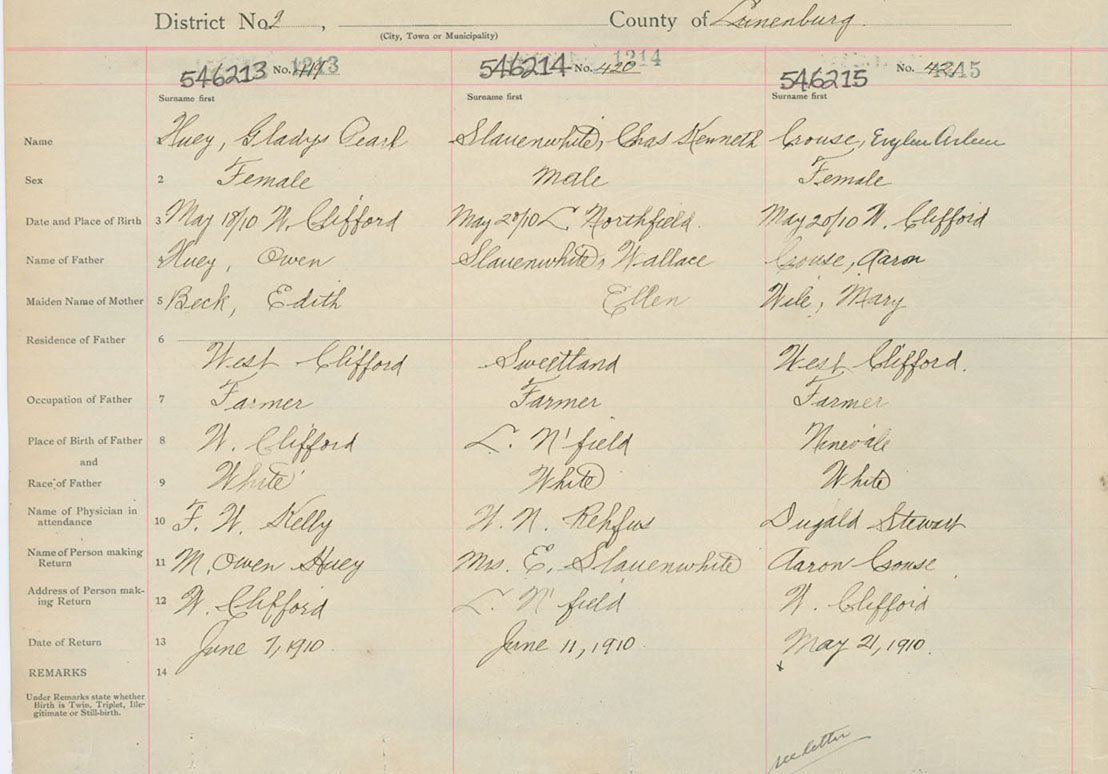 District No. 2 , County of Lunenburg
(City, Town or Municipality)
546213 No. 419 1213 546214 No. 420 1214 546215 No. 421 1215
Surname first Surname first Surname first
Name Huey, Gladys Pearl Slauenwhite, Chas Kenneth Crouse,
Sex 2 Female Male Female
Date and Place of Birth 3 May 18/10 W. Clifford May 20/10 L. Northfield. May 20/10 W. Clifford
Name of Father Huey, Owen Slauenwhite, Wallace Crouse, Aaron
Maiden Name of Mother 5 Beck, Edith Ellen Wile, Mary
Residence of Father 6
West Clifford Sweetland West Clifford.
Occupation of Father 7 Farmer Farmer Farmer
Place of Birth of Father 8 W. Clifford L. N'field
and
Race of Father 9 White White White
Name of Physician in
attendance 10 F. W. Kelly W. N. Rehfus Dugald Stewart
Name of Person making
Return 11 M. Owen Huey Mrs. E. Slauenwhite Aaron Crouse
Address of Person mak-
ing Return 12 W. Clifford L. N'field W. Clifford
Date of Return 13 June 7, 1910. June 11, 1910. May 21, 1910.
REMARKS 14 x
Under Remarks state whether
Birth is Twin, Triplet, Ille-
gitimate or Still-birth.
see letter